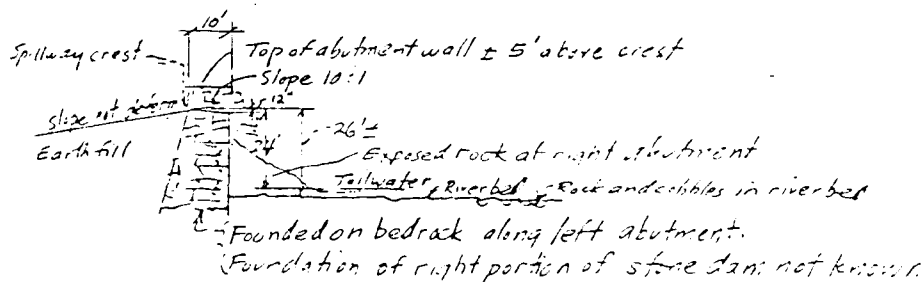 10'
Spillway crest
Top of abutment wall ± 5' above crest
Slope 10:1
12"
Slope not determ
26'±
24'
Earthfill
Exposed rock at right abutment
Tailwater
Riverbed
Rock and cobbles in riverbed
Founded on bedrock along left abutment.
Foundation of right portion of stone dam not known.